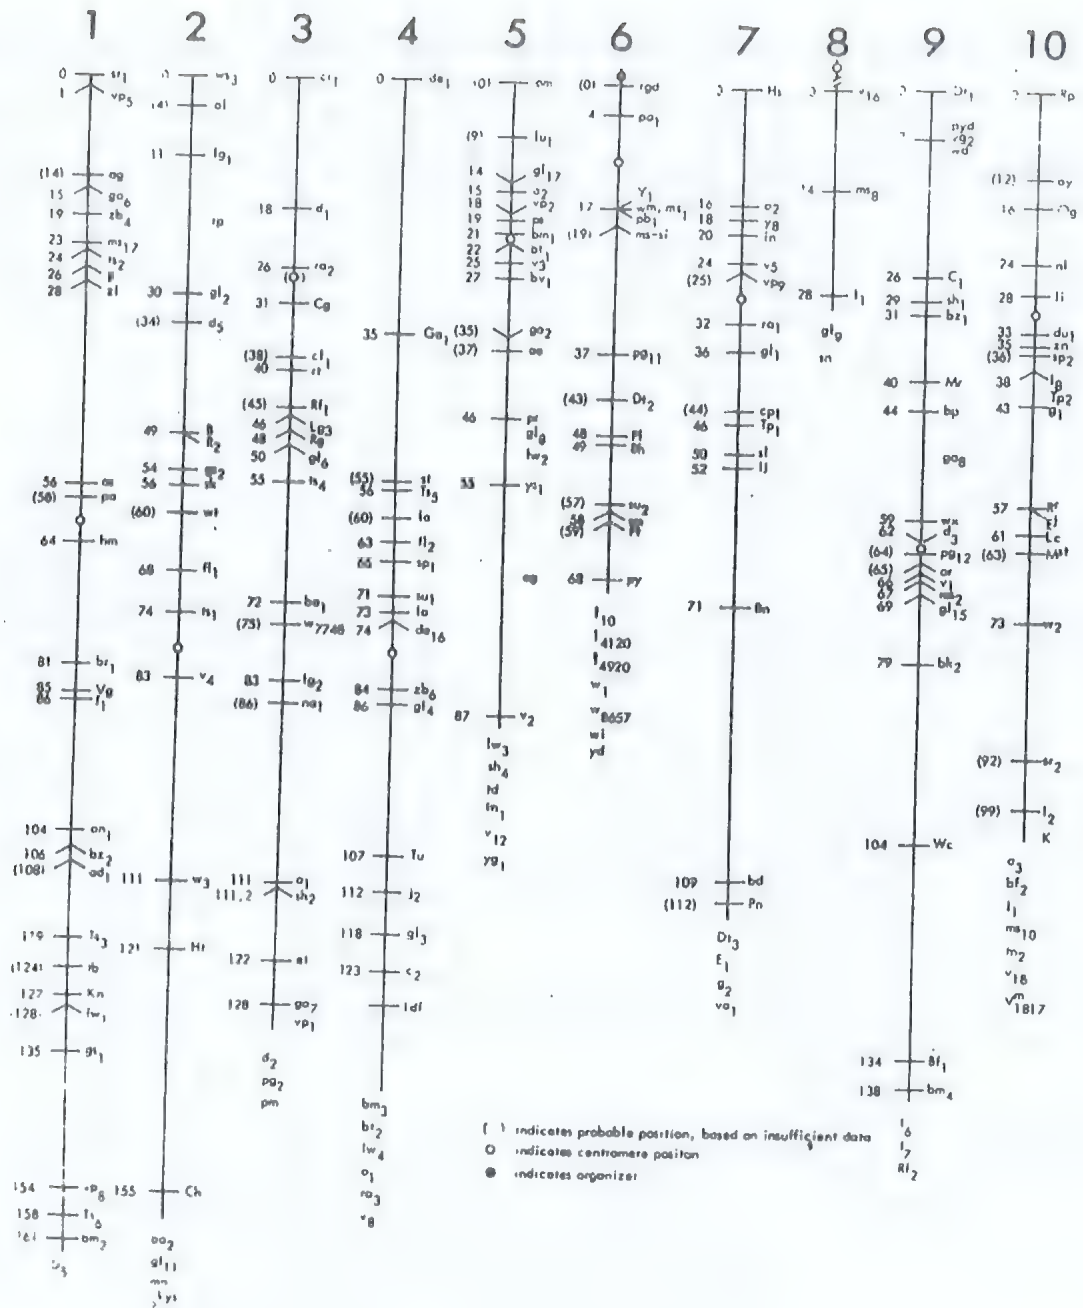 1 2 3 4 5 6 7 8 9 10
0 sr1
1 vp5
(14) ag
15 ga6
19 zb4
23 ms17
24 ts2
26
28
56 as
(58) pa
64 hm
81 br1
85 Vg
86 f1
104 an1
106 bz2
(108) ad1
119 Ts3
(124) rb
127 Kn
-128- tw1
135 gt1
154 vp8
158 Ts6
161 bm2
0 ws3
(4) al
11 lg1
sp
30 gl2
(34) d5
49 B
R2
54
56 sk
(60) wt
68 fl1
74 ts1
83 v4
111 w3
121 Ht
155 Ch
ba2
gl11
mn
0 cr1
18 d1
26 ra2
31 Cg
(38) cl1
40 rt
(45) Rf1
46 Lg3
48 Rg
50 gl6
55 ts4
72 ba1
(75) w7748
83 lg2
(86) na1
111 a1
111.2 sh2
122 et
128 ga7
vp1
d2
pg2
pm
0 de1
35 Ga1
(55) st
56 Ts5
(60) la
63 fl2
65 sp1
71 su1
73 la
74 de16
84 zb6
86 gl4
107 Tu
112 j2
118 gl3
123 c2
Idf
bm3
bt2
lw4
o1
ra3
v8
(0) am
(9) lu1
14 gl17
15 a2
18 vp2
19 ps
21 bm1
22 bt1
25 v3
27 bv1
(35) ga2
(37) ae
46 pr
gl8
lw2
55 ys1
eg
87 v2
lw3
sh4
td
In1
v12
yg1
(0) rgd
4 po1
Y1
17 wm, ms1
pb1
(19) ms-si
37 pg11
(43) Dt2
48 Pl
49 Bh
(57) su2
58
(59) Pt
68 py
l10
l4120
l4920
w1
w8657
wi
yd
0 Hs
16 o2
18 y8
20 in
24 v5
(25) vp9
32 ra1
36 gl1
(44) cp1
46 Tp1
50 sl
52 ij
71 Bn
109 bd
(112) Pn
Dt3
E1
g2
va1
0 v16
14 ms8
28 j1
gl9
sn
0 Dt1
7 pyd
yg2
wd
26 C1
29 sh1
31 bz1
40 Mr
44 bp
ga8
59 wx
62 d3
(64) pg12
(65) ar
66 v1
67 ms2
69 gl15
79 bk2
104 Wc
134 Bf1
138 bm4
l6
l7
Rf2
0 Rp
(12) oy
16 Og
24 nl
28 li
33 du1
35 zn
(36) sp2
38 l8
Tp2
43 g1
57 Rr
61 Lc
(63) Mst
73 w2
(92) sr2
(99) l2
K
a3
bf2
l1
ms10
m2
v18
( ) indicates probable position, based on insufficient data
indicates centromere positon
indicates organizer